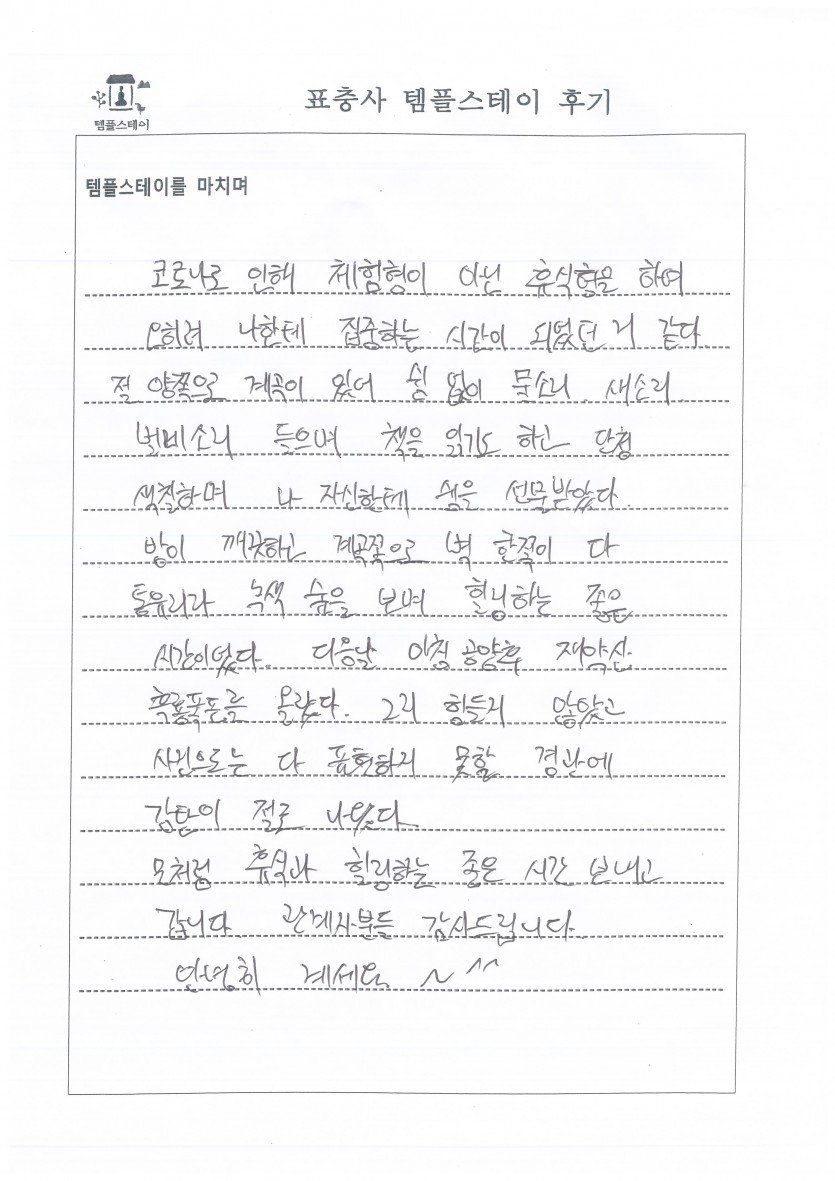 템플스테이
표충사 템플스테이 후기
템플스테이를 마치며
코로나로 인해 체험형이 아닌 휴식형을 하여
오히려 나한테 집중하는 시간이 되었던 거 같다.
절 양쪽으로 계곡이 있어 쉼 없이 물소리. 새소리.
벌레소리 들으며 책을 읽기도 하고 단청
색칠하며 나 자신한테 쉼을 선물받았다.
방이 깨끗하고 계곡쪽으로 벽 한쪽이 다
통유리라 녹색 숲을 보며 힐닝하는 좋은
시간이었다. 다음날 아침 공양후 재약산
흑룡폭포를 올랐다. 그리 힘들지 않았고
사진으로는 다 표현하지 못할 경관에
감탄이 절로 나왔다.
모처럼 휴식과 힐링하는 좋은 시간 보내고
갑니다. 관계자분들 감사드립니다.
안녕히 계세요 ~ ^^